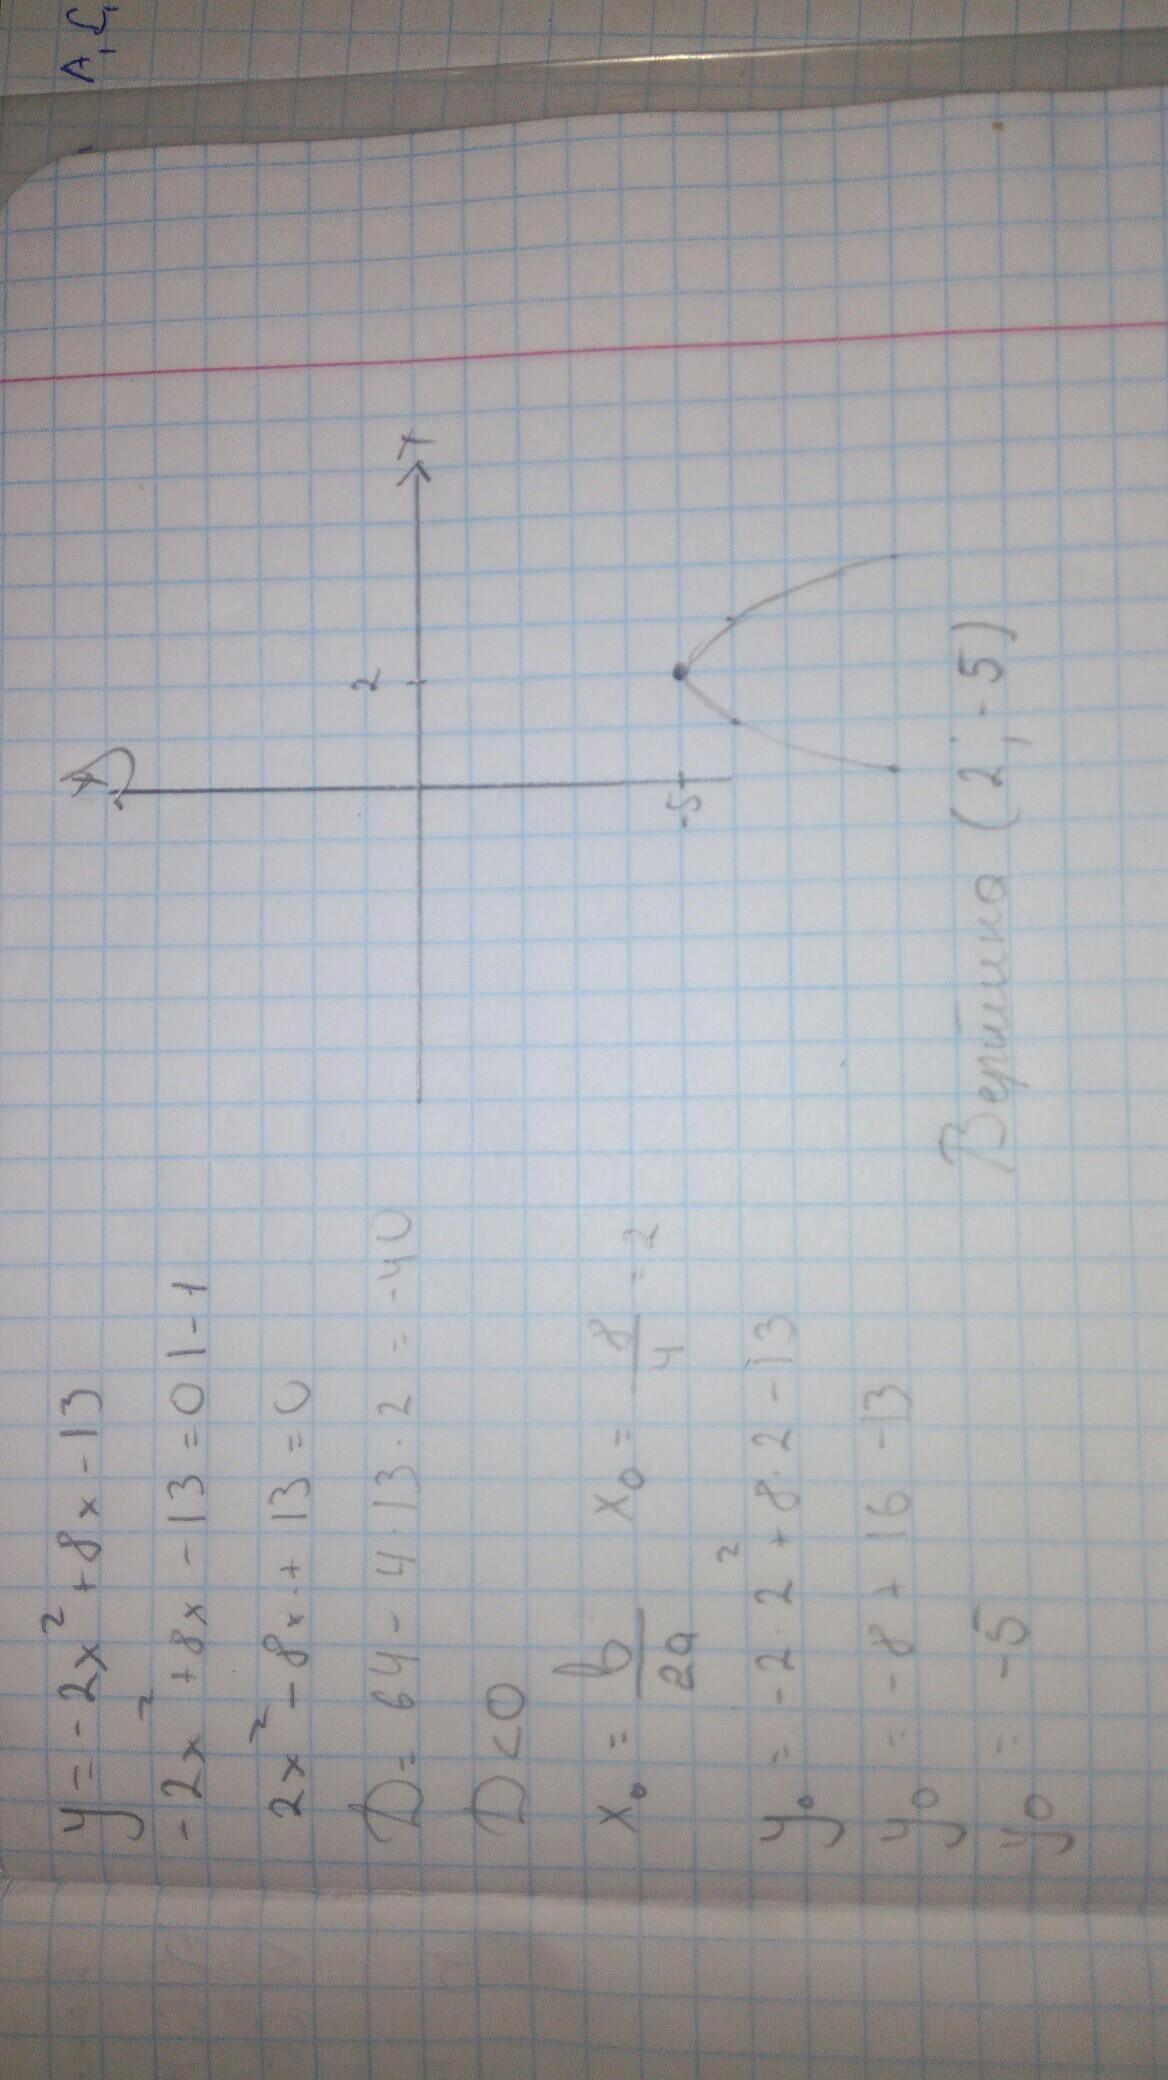 y = -2x² + 8x - 13
-2x² + 8x - 13 = 0 | -1
2x² - 8x + 13 = 0
D = 64 - 4 · 13 · 2 = -40
D < 0
x₀ = b/2a x₀ = 8/4 = 2
y₀ = -2 · 2² + 8 · 2 - 13
y₀ = -8 + 16 - 13
y₀ = -5
y
x
2
-5
Вершина (2; -5)